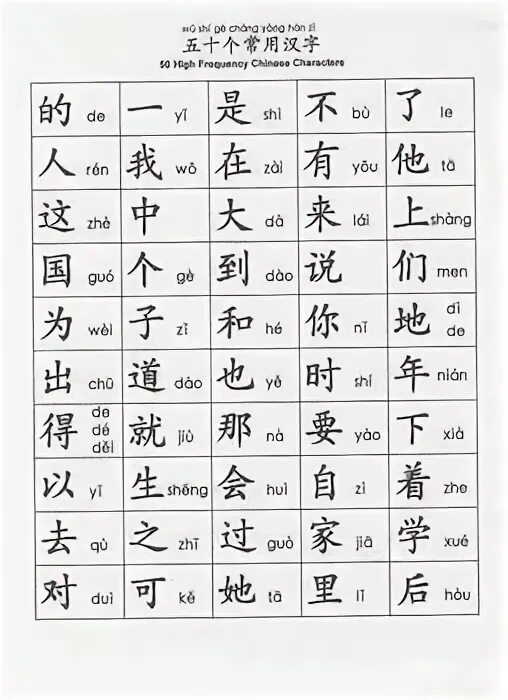 wǔ shí gè cháng yòng hàn zì
五十个常用汉字
50 High Frequency Chinese Characters
的 de 一 yī 是 shì 不 bù 了 le
人 rén 我 wǒ 在 zài 有 yǒu 他 tā
这 zhè 中 大 dà 来 lái 上 shàng
国 guó 个 gè 到 dào 说 们 men
为 wèi 子 zǐ 和 hé 你 nǐ 地 dì de
出 chū 道 dào 也 yě 时 shí 年 nián
得 de dé děi 就 jiù 那 nà 要 yào 下 xià
以 yǐ 生 shēng 会 huì 自 zì 着 zhe
去 qù 之 zhī 过 guò 家 jiā 学 xué
对 duì 可 kě 她 tā 里 lǐ 后 hòu